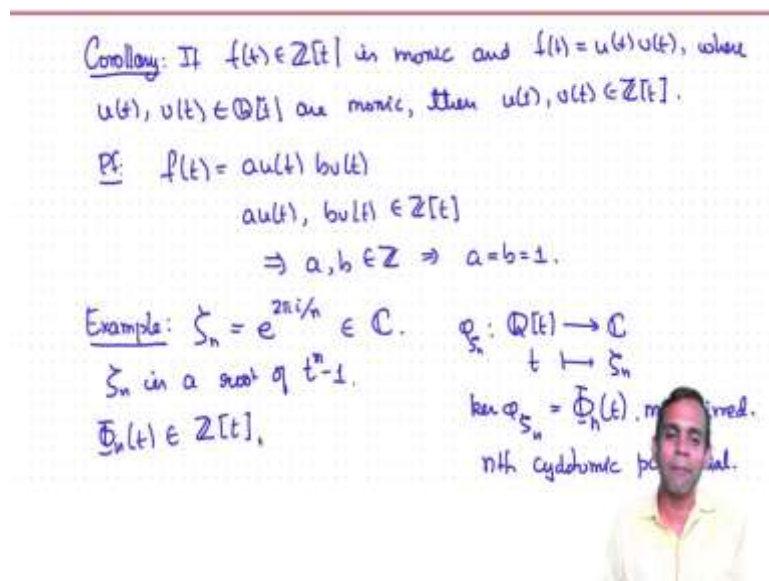 Corollary: If f(t) ∈ ℤ[t] is monic and f(t) = u(t)v(t), where
u(t), v(t) ∈ ℚ[t] are monic, then u(t), v(t) ∈ ℤ[t].
Pf: f(t) = au(t) bv(t)
au(t), bv(t) ∈ ℤ[t]
⇒ a, b ∈ ℤ ⇒ a = b = 1.
Example: ζₙ = e^{2πi/n} ∈ ℂ.
ζₙ is a root of tⁿ-1.
Φₙ(t) ∈ ℤ[t].
φ_{ζₙ}: ℚ[t] → ℂ
t ↦ ζₙ
ker φ_{ζₙ} = Φₙ(t).
nth cyclotomic